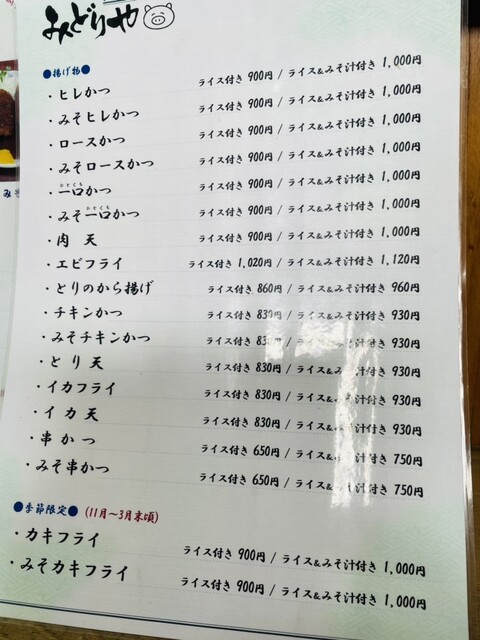 みどりや
●揚げ物●
・ヒレかつ ライス付き 900円 / ライス&みそ汁付き 1,000円
・みそヒレかつ ライス付き 900円 / ライス&みそ汁付き 1,000円
・ロースかつ ライス付き 900円 / ライス&みそ汁付き 1,000円
・みそロースかつ ライス付き 900円 / ライス&みそ汁付き 1,000円
・一口かつ ライス付き 900円 / ライス&みそ汁付き 1,000円
・みそ一口かつ ライス付き 900円 / ライス&みそ汁付き 1,000円
・肉 天 ライス付き 900円 / ライス&みそ汁付き 1,000円
・エビフライ ライス付き 1,020円 / ライス&みそ汁付き 1,120円
・とりのから揚げ ライス付き 860円 / ライス&みそ汁付き 960円
・チキンかつ ライス付き 830円 / ライス&みそ汁付き 930円
・みそチキンかつ ライス付き 830円 / ライス&みそ汁付き 930円
・とり天 ライス付き 830円 / ライス&みそ汁付き 930円
・イカフライ ライス付き 830円 / ライス&みそ汁付き 930円
・イカ天 ライス付き 830円 / ライス&みそ汁付き 930円
・串かつ ライス付き 650円 / ライス&みそ汁付き 750円
・みそ串かつ ライス付き 650円 / ライス&みそ汁付き 750円
●季節限定●(11月〜3月末頃)
・カキフライ ライス付き 900円 / ライス&みそ汁付き 1,000円
・みそカキフライ ライス付き 900円 / ライス&みそ汁付き 1,000円